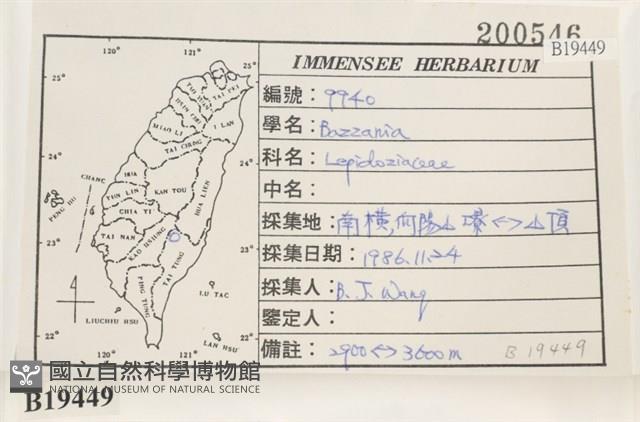 200546
B19449
IMMENSEE HERBARIUM
編號：9940
學名：Bazzania
科名：Lepidoziaceae
中名：
採集地：南橫,向陽山塚<->山頂
採集日期：1986.11.24
採集人：B. J. Wang
鑒定人：
備註：2900<->3600m B19449
120° 121°
25° 25°
TAO YUAN TAI PEI
HSIN CHU
MIAO LI I LAN
TAI CHUNG
24° 24°
CHANG HUA
NAN TOU HUA LIEN
YUN LIN
PENG HU
CHIA YI
23° TAI NAN KAO HSIUNG 23°
TAI TUNG
PING TUNG
LU TAO
LIUCHIU HSU
22° LAN HSU 22°
120° 121°
國立自然科學博物館
NATIONAL MUSEUM OF NATURAL SCIENCE
B19449